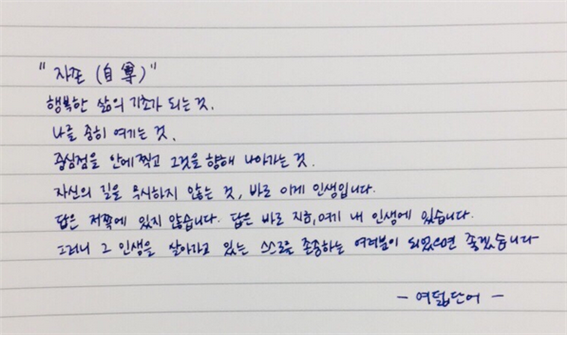 "자존 (自尊)"
행복한 삶의 기초가 되는 것.
나를 중히 여기는 것.
중심점을 안에 찍고 그것을 향해 나아가는 것.
자신의 길을 무시하지 않는 것, 바로 이게 인생입니다.
답은 저쪽에 있지 않습니다. 답은 바로 지금, 여기 내 인생에 있습니다.
그러니 그 인생을 살아가고 있는 스스로를 존중하는 여러분이 되었으면 좋겠습니다
- 여덟단어 -